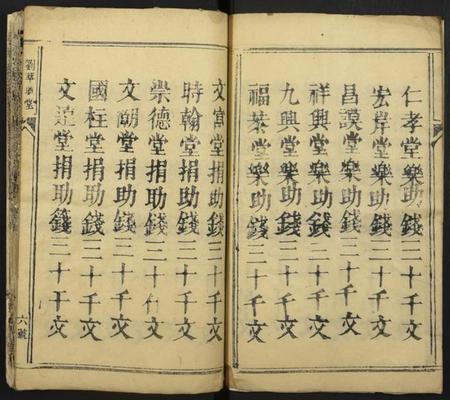 仁孝堂樂助錢三十千文
宏岸堂樂助錢三十千文
昌謨堂樂助錢三十千文
祥興堂樂助錢三十千文
九興堂樂助錢三十千文
福荣堂樂助錢三十千文
文富堂捐助錢三十千文
時翰堂捐助錢三十千文
崇德堂捐助錢三十千文
文朗堂捐助錢三十千文
國柱堂捐助錢三十千文
文堂捐助錢三十千文
劉堂
六號